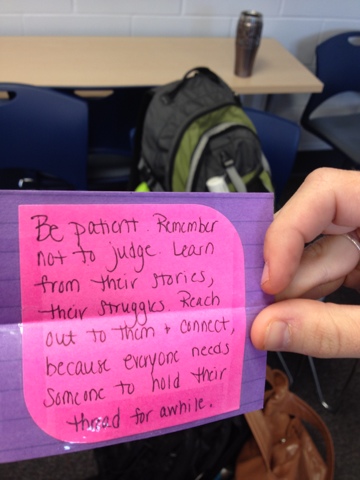 Be patient. Remember
not to judge. Learn
from their stories,
their struggles. Reach
out to them + connect,
because everyone needs
someone to hold their
thread for awhile.